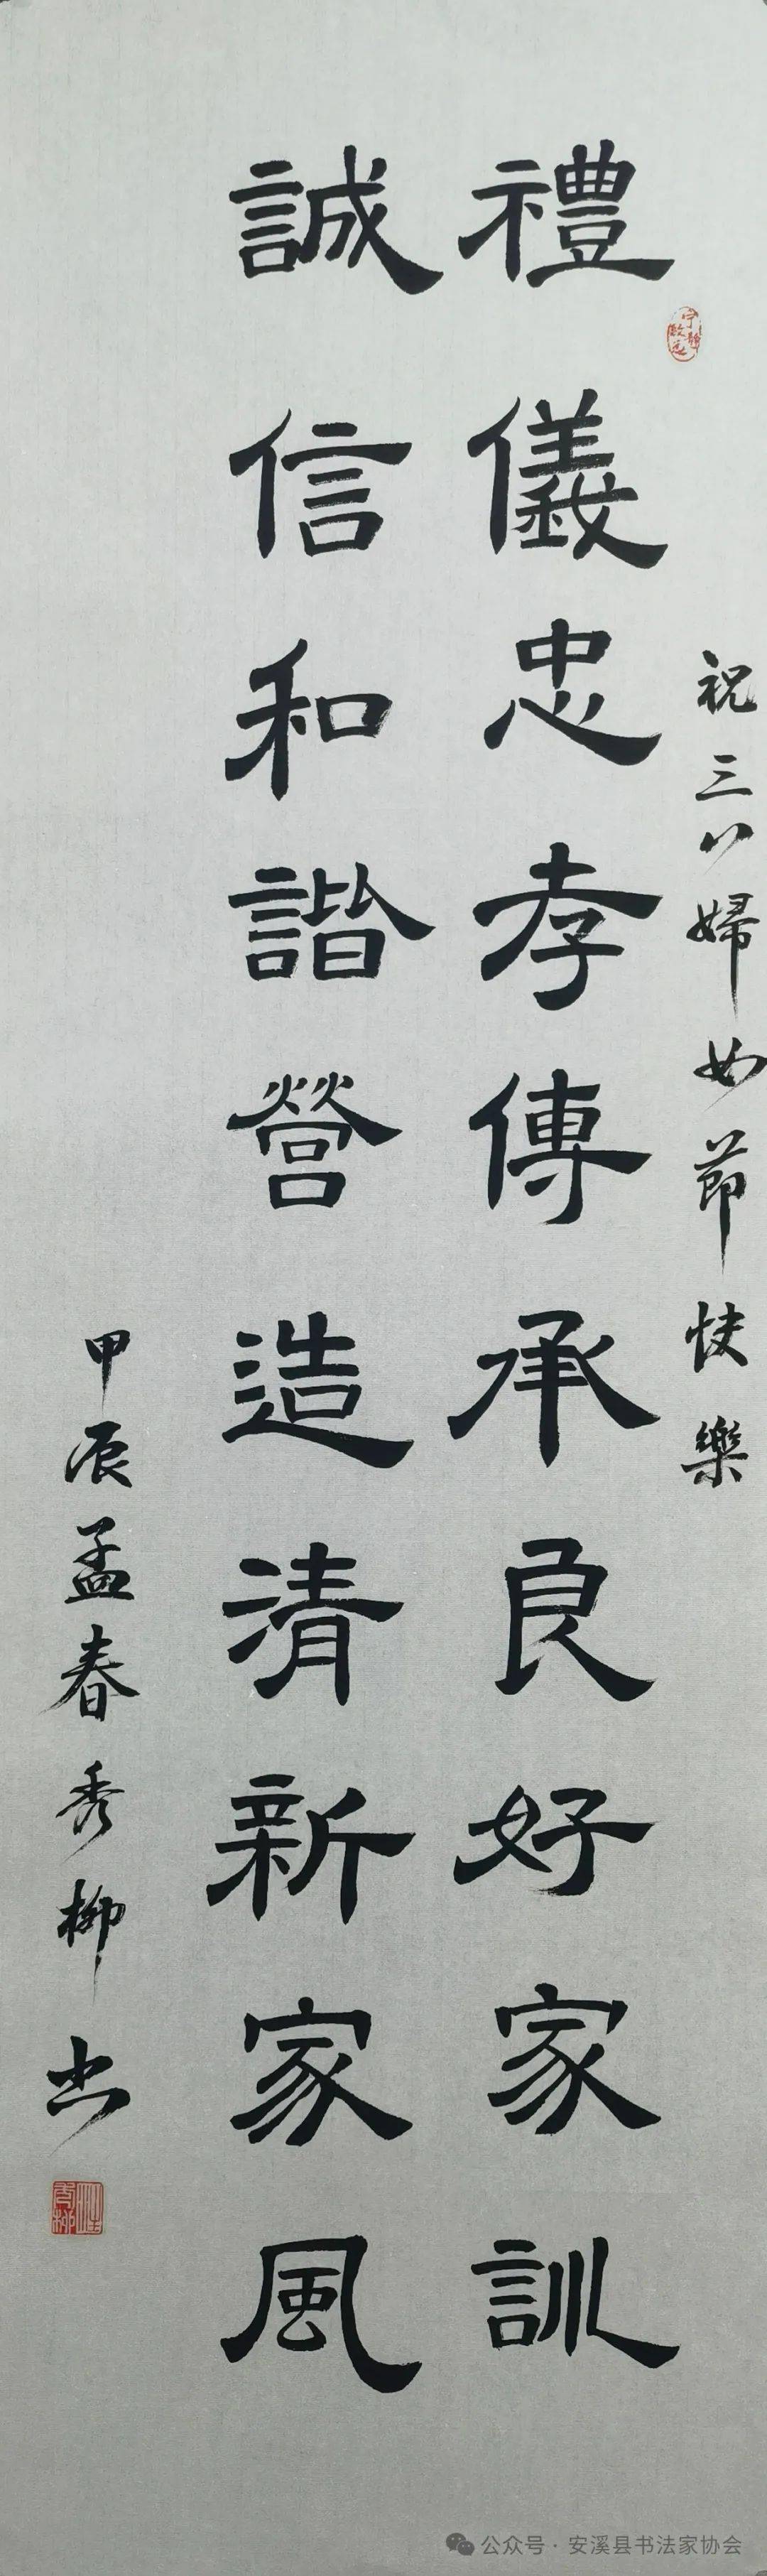 祝三八婦女節快樂
禮儀忠孝傳承良好家訓
誠信和諧營造清新家風
甲辰孟春秀柳书
公众号·安溪县书法家协会